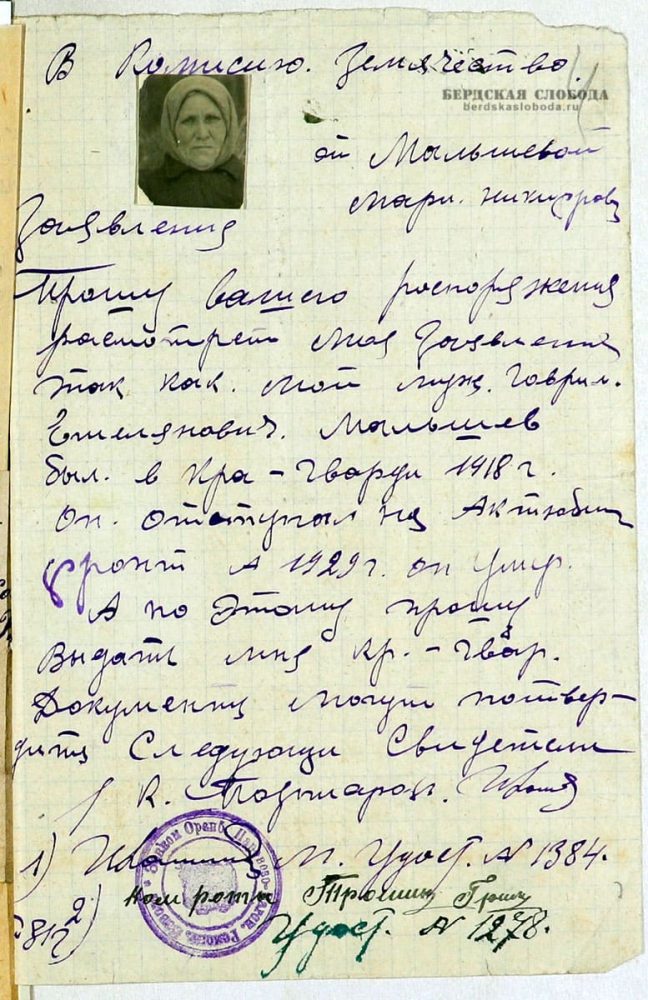 В Комисию. Землячество.
БЕРДСКАЯ СЛОБОДА
berdskasloboda.ru
от Малышевой
Мари. Никифров
Заявления
Прошу вашего распоряжения
расмотреть мая Заявления
так как. мой муж. Гаврил.
Емелянович. Малышев
был. в Кра-гварди 1918 г.
Он. отступал на Актюбин
фронт А 1929 г. он умир.
А по этому прошу
Выдать мня кр.-гвар.
Документы могут потвер-
дить Следующи Свидетели
К.
1) М. Удост. N 1384.
2) Ком роты Трошин
Удост. N 1278.